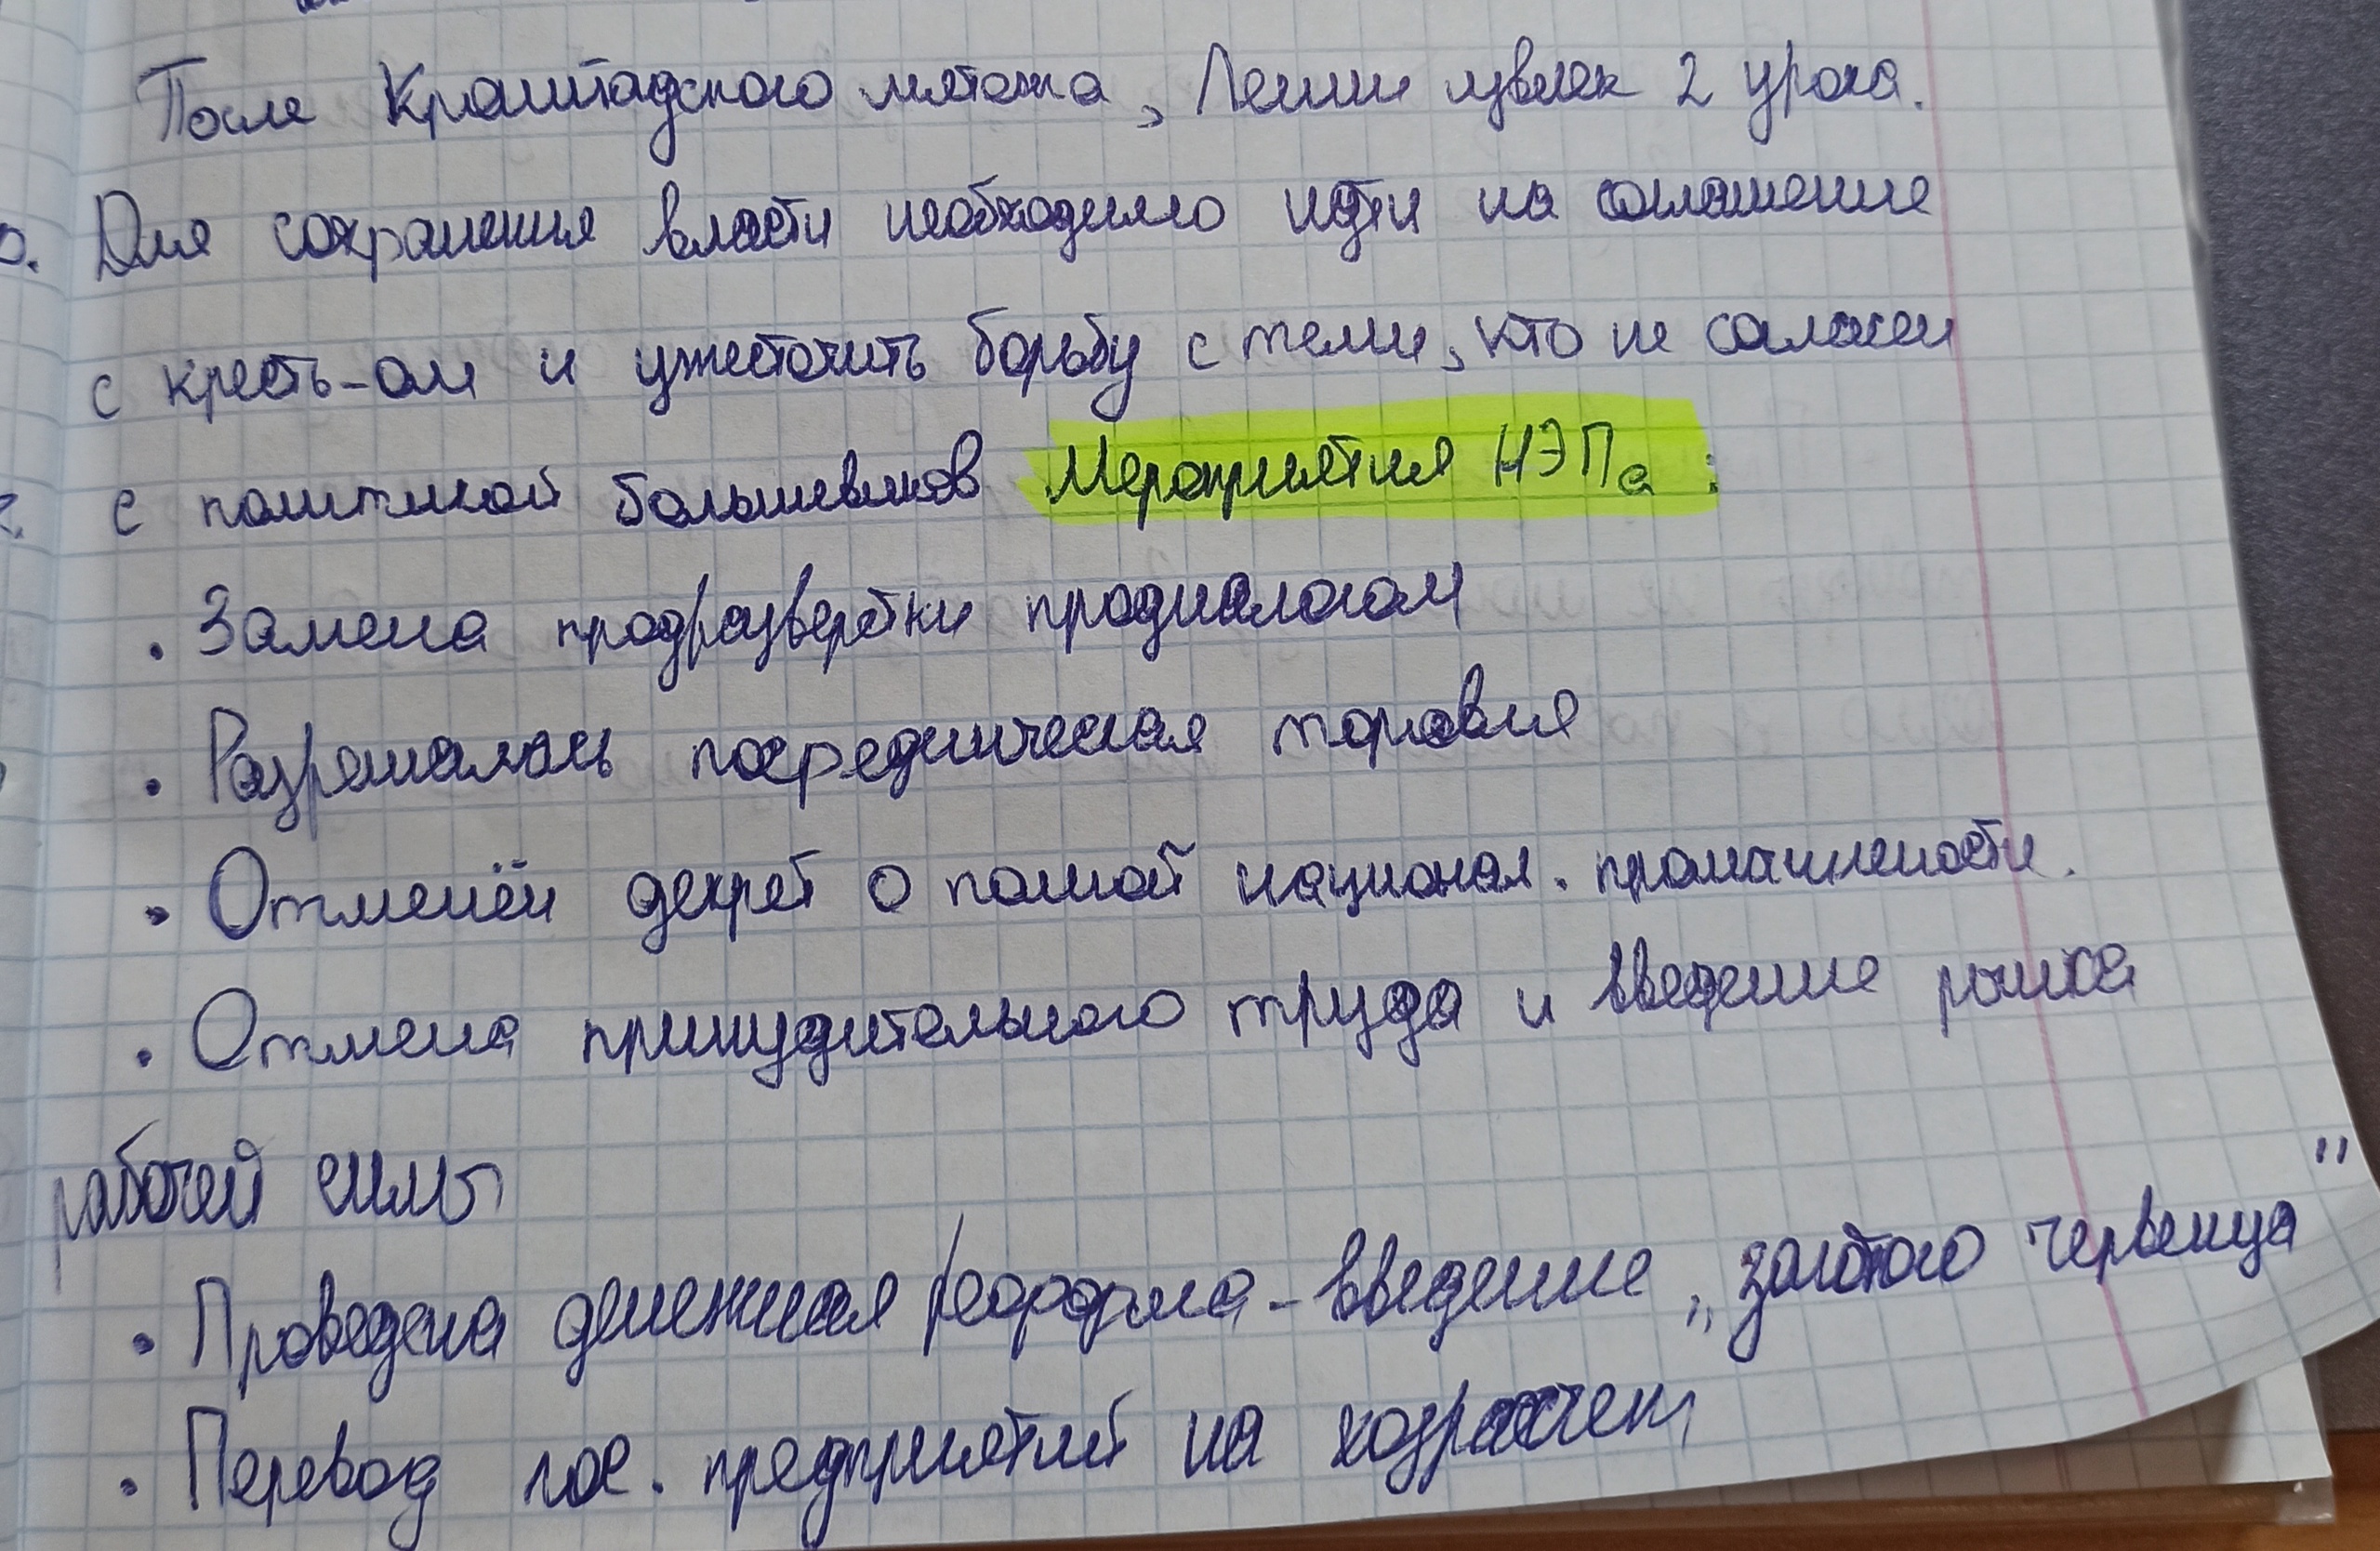 После Кронштадского мятежа, Ленин извлек 2 урока.
Для сохранения власти необходимо идти на соглашение
с кресть-ом и ужесточить борьбу с теми, кто не согласен
с политикой большевиков Мероприятия НЭПа:
• Замена продразверстки продналогом
• Разрешалась посредническая торговля
• Отменён декрет о полной национал. промышлености.
• Отмена принудительного труда и введение рынка
рабочей силы
• Проведена денежная реформа - введение „золотого червонца"
• Перевод гос. предприятий на хозрасчет